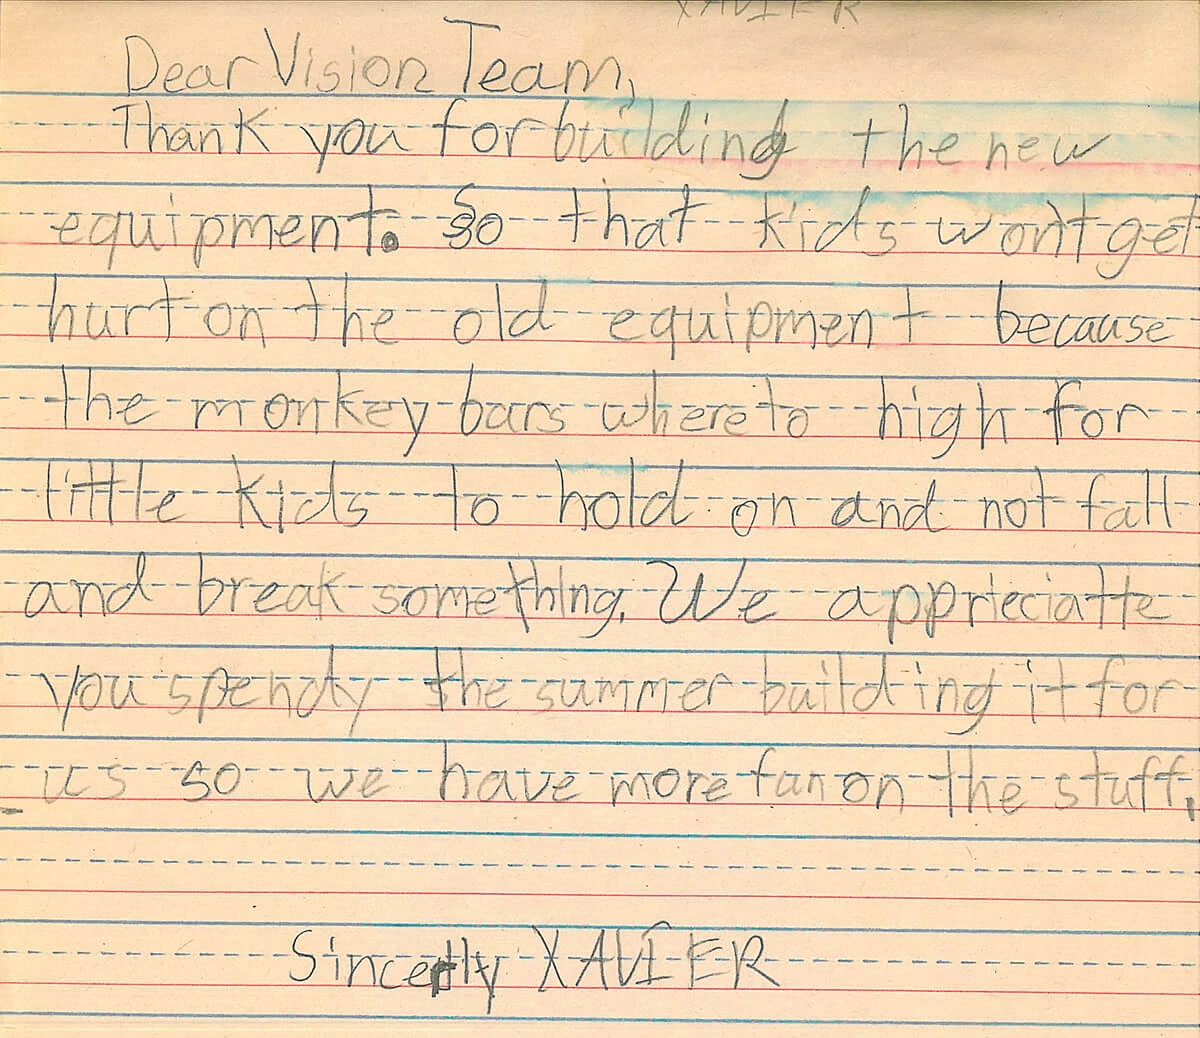 XAVIER
Dear Vision Team,
Thank you for building the new
equipment. So that kids wont get
hurt on the old equipment because
the monkey bars where to high for
little kids to hold on and not fall
and break something. We apprieciatte
you spendy the summer building it for
us so we have more fun on the stuff.
Sincertly XAVIER